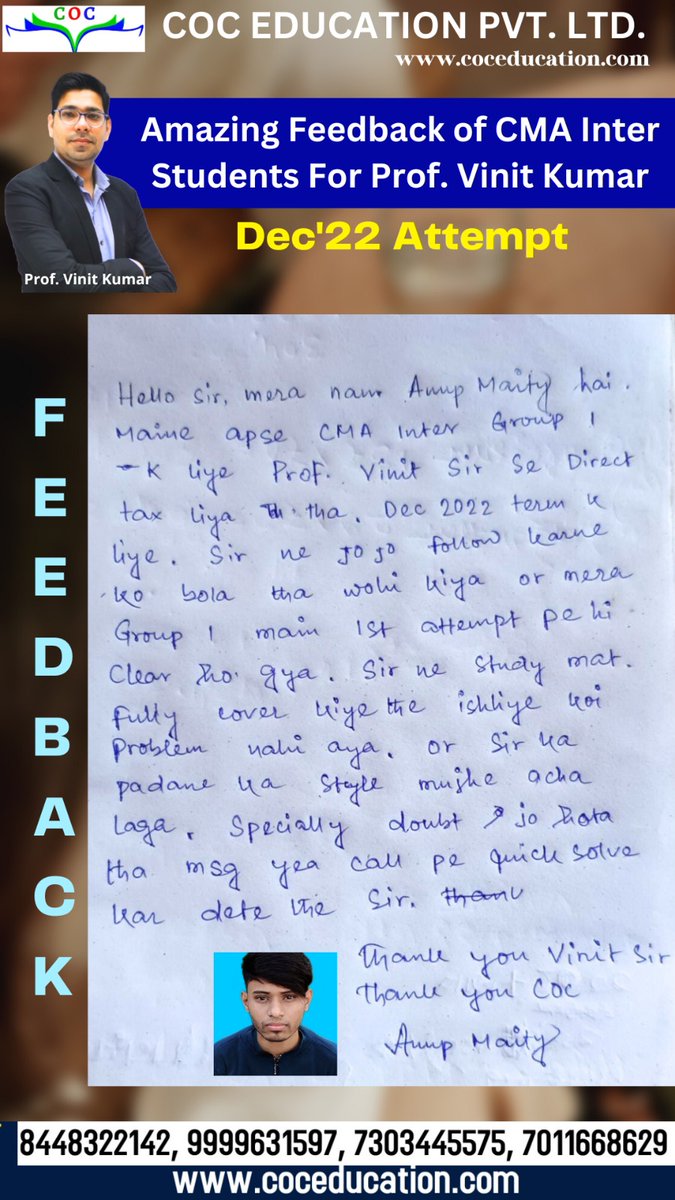 COC
COC EDUCATION PVT. LTD.
www.coceducation.com
Amazing Feedback of CMA Inter
Students For Prof. Vinit Kumar
Dec'22 Attempt
Prof. Vinit Kumar
FEEDBACK
Hello Sir, mera nam Anup Maity hai.
Maine apse CMA Inter Group 1
-K liye Prof. Vinit Sir Se Direct
tax liya tha. Dec 2022 term k
liye. Sir ne jo jo follow karne
ko bola tha wohi kiya or mera
Group 1 main 1st attempt pe hi
Clear ho gya. Sir ne study mat.
fully cover kiye the ishliye koi
Problem nahi aya. or Sir ka
padane ka style mujhe acha
laga. Specially doubt jo hota
tha msg yea call pe quick solve
kar dete the Sir. thank
Thank you Vinit Sir
Thank you COC
Anup Maity
8448322142, 9999631597, 7303445575, 7011668629
www.coceducation.com